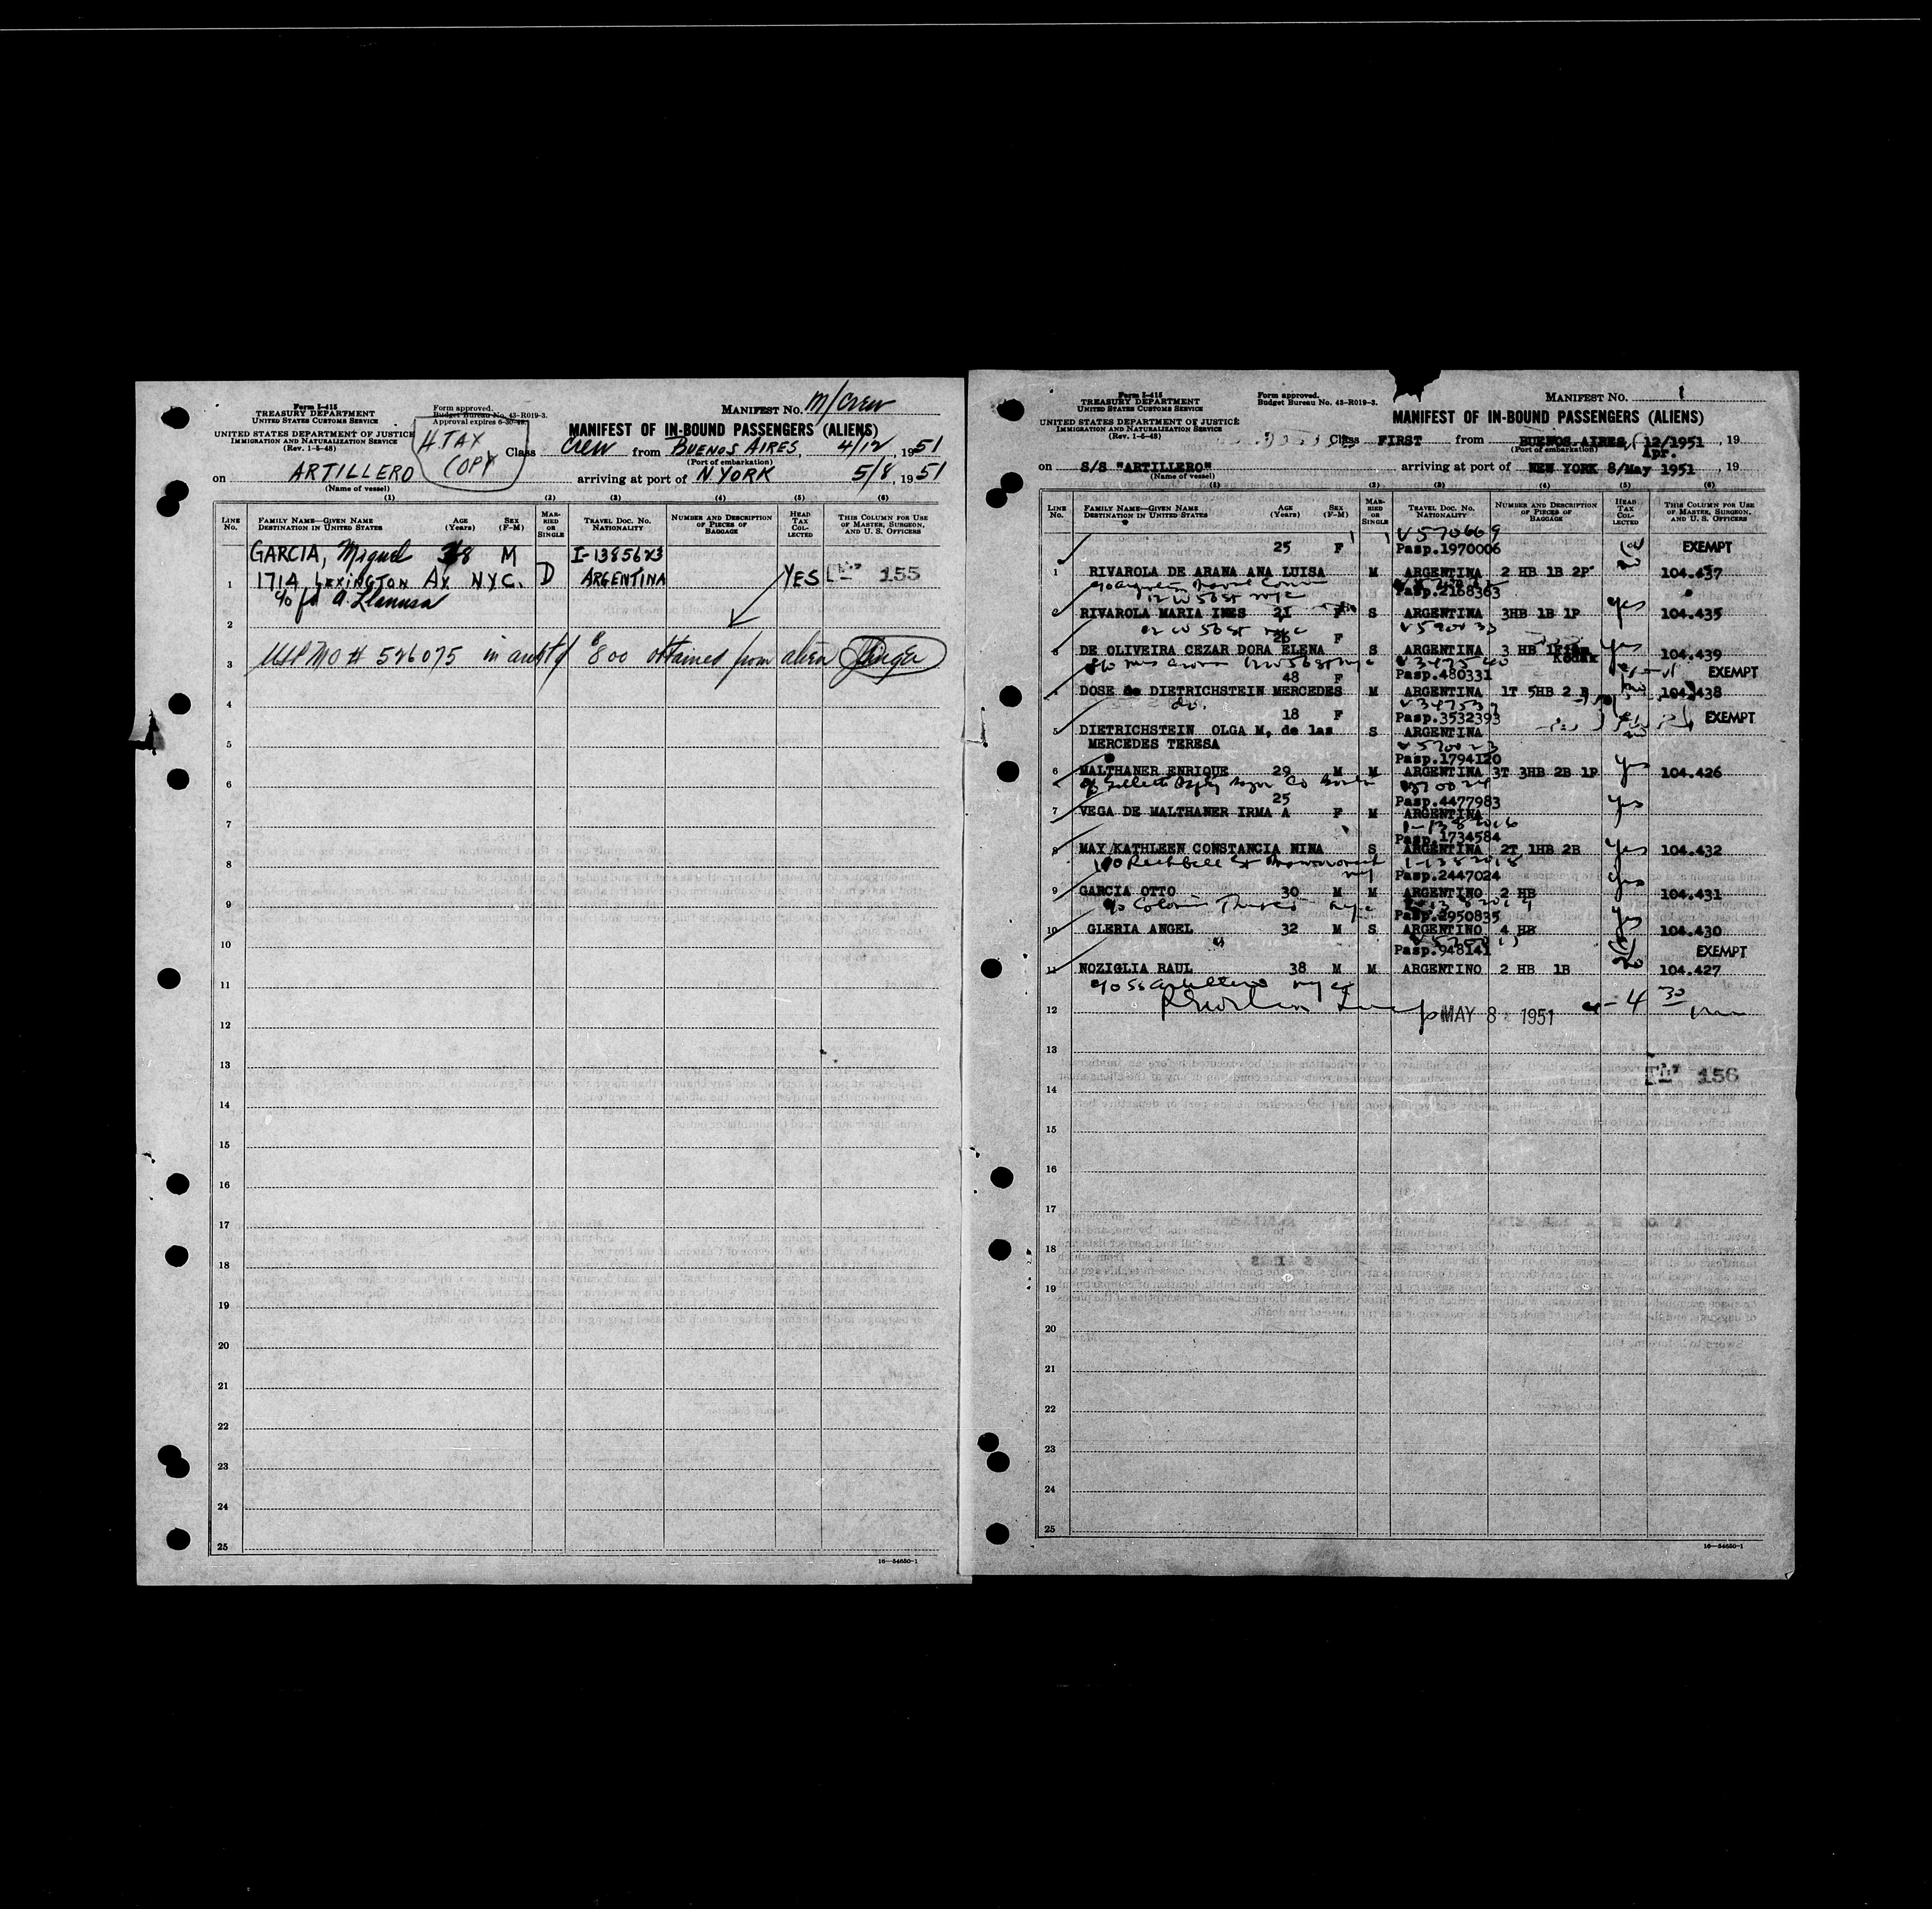 Form I-415
TREASURY DEPARTMENT
UNITED STATES CUSTOMS SERVICE
UNITED STATES DEPARTMENT OF JUSTICE
IMMIGRATION AND NATURALIZATION SERVICE
(Rev. 1-5-48)
Form approved.
Budget Bureau No. 43-R019-3.
Approval expires 6-30-49.
H TAX
COPY
MANIFEST No. M/Crew
MANIFEST OF IN-BOUND PASSENGERS (ALIENS)
Class Crew from BUENOS AIRES, 4/12, 1951
(Port of embarkation)
on ARTILLERO arriving at port of N YORK 5/8, 1951
(Name of vessel)
(1) (2) (3) (4) (5) (6)
LINE No. FAMILY NAME—GIVEN NAME DESTINATION IN UNITED STATES AGE (Years) SEX (F-M) MARRIED OR SINGLE TRAVEL DOC. No. NATIONALITY NUMBER AND DESCRIPTION OF PIECES OF BAGGAGE HEAD TAX COLLECTED THIS COLUMN FOR USE OF MASTER, SURGEON, AND U. S. OFFICERS
GARCIA, Miguel 38 M I-1385623
1 1714 LEXINGTON AV N.Y.C. D ARGENTINA YES 155
c/o A. Llanusa
2
3 MO # 526075 in amt of $8 00 obtained from alien
4
5
6
7
8
9
10
11
12
13
14
15
16
17
18
19
20
21
22
23
24
25
16—54650-1
Form I-415
TREASURY DEPARTMENT
UNITED STATES CUSTOMS SERVICE
UNITED STATES DEPARTMENT OF JUSTICE
IMMIGRATION AND NATURALIZATION SERVICE
(Rev. 1-5-48)
Form approved.
Budget Bureau No. 43-R019-3.
MANIFEST No. 1
MANIFEST OF IN-BOUND PASSENGERS (ALIENS)
Class FIRST from BUENOS AIRES, 12/1951, 19
(Port of embarkation) Apr.
on S/S "ARTILLERO" arriving at port of NEW YORK 8/May 1951, 19
(Name of vessel)
(1) (2) (3) (4) (5) (6)
LINE No. FAMILY NAME—GIVEN NAME DESTINATION IN UNITED STATES AGE (Years) SEX (F-M) MARRIED OR SINGLE TRAVEL DOC. No. NATIONALITY NUMBER AND DESCRIPTION OF PIECES OF BAGGAGE HEAD TAX COLLECTED THIS COLUMN FOR USE OF MASTER, SURGEON, AND U. S. OFFICERS
V570669
25 F Pasp.1970006 EXEMPT
1 RIVAROLA DE ARANA ANA LUISA M ARGENTINA 2 HB 1B 2P 104.437
Pasp.2168363
12 W 56 st nyc
RIVAROLA MARIA INES 21 F S ARGENTINA 3HB 1B 1P yes 104.435
12 W 56 st nyc
26 F
3 DE OLIVEIRA CEZAR DORA ELENA S ARGENTINA 3 HB Kodak yes 104.439
12 W 56 st nyc V347540
48 F Pasp.480331 EXEMPT
DOSE de DIETRICHSTEIN MERCEDES M ARGENTINA 1T 5HB 2 B 104.438
do.
18 F Pasp.3532393 EXEMPT
5 DIETRICHSTEIN OLGA M, de las S ARGENTINA
MERCEDES TERESA
V570023
Pasp.1794120
6 MALTHANER ENRIQUE 29 M M ARGENTINA 3T 3HB 2B 1P yes 104.426
c/o Gillette Safety Razor Co
25 Pasp.4477983
7 VEGA DE MALTHANER IRMA A F M ARGENTINA yes
Pasp.1734584
8 MAY KATHLEEN CONSTANCIA NINA S ARGENTINA 2T 1HB 2B yes 104.432
Pasp.2447024
9 GARCIA OTTO 30 M M ARGENTINO 2 HB yes 104.431
nyc
Pasp.2950835
10 GLERIA ANGEL 32 M S ARGENTINO 4 HB yes 104.430
Pasp.948141 EXEMPT
11 NOZIGLIA RAUL 38 M M ARGENTINO 2 HB 1B 104.427
c/o SS Artillero nyc
12 MAY 8 1951
13
14 156
15
16
17
18
19
20
21
22
23
24
25
16—54650-1